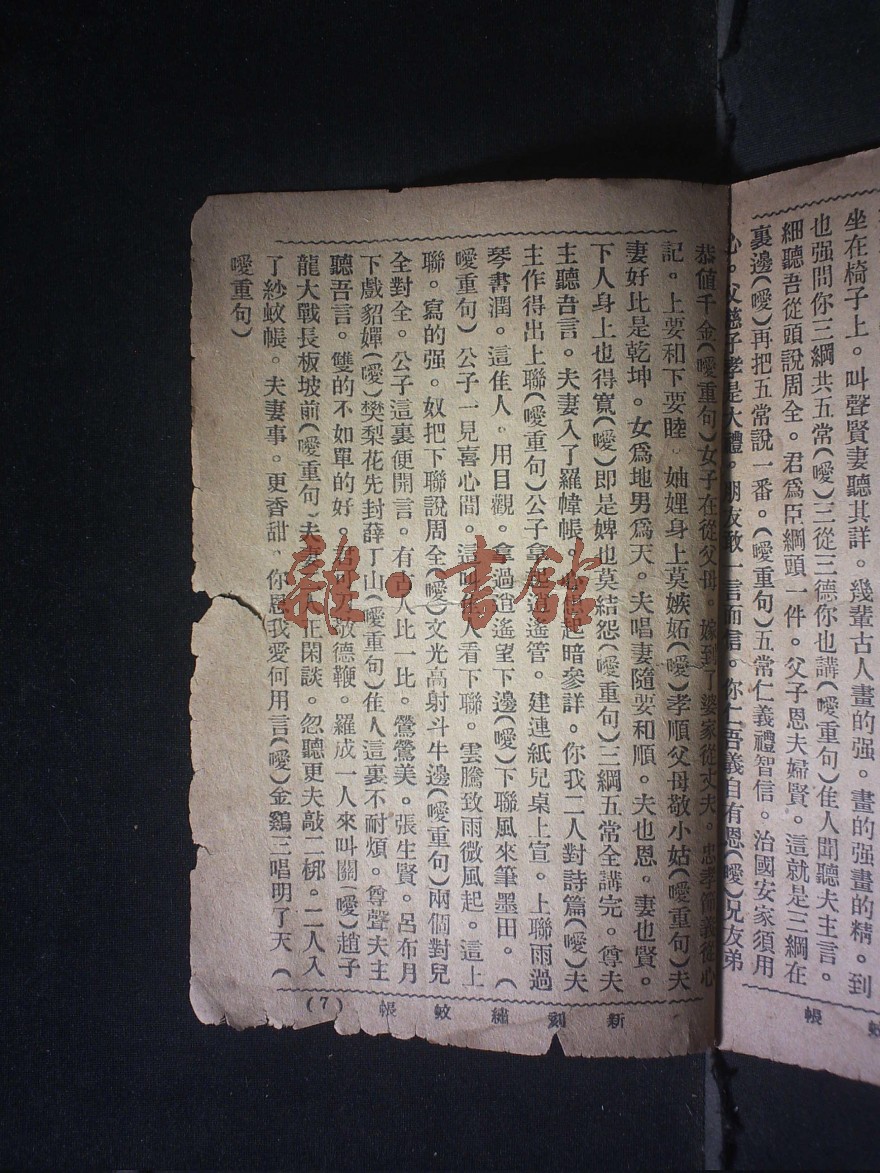 坐在椅子上。叫聲賢妻聽其詳。幾輩古人畫的强。畫的强畫的精。到
也强問你三綱共五常(噯)三從三德你也講(噯重句)佳人聞聽夫主言。
細聽吾從頭說周全。君爲臣綱頭一件。父子恩夫婦賢。這就是三綱在
裏邊(噯)再把五常說一番。(噯重句)五常仁義禮智信。治國安家須用
心。父慈子孝是大禮。朋友敢一言而信。你仁吾義自有恩(噯)兄友弟
恭値千金(噯重句)女子在從父母。嫁到了婆家從丈夫。忠孝節義從心
記。上要和下要睦。妯娌身上莫嫉妬(噯)孝順父母敬小姑(噯重句)夫
妻好比是乾坤。女爲地男爲天。夫唱妻隨要和順。夫也恩。妻也賢。
下人身上也得寬(噯)即是婢也莫結怨(噯重句)三綱五常全講完。尊夫
主聽吾言。夫妻入了羅幃帳。心起暗參詳。你我二人對詩篇(噯)夫
主作得出上聯(噯重句)公子拿起逍遙管。建連紙兒桌上宣。上聯雨過
琴書潤。這佳人。用目觀。拿過逍遙望下邊(噯)下聯風來筆墨田。(
噯重句)公子一見喜心間。這叫佳人看下聯。雲騰致雨微風起。這上
聯。寫的强。奴把下聯說周全(噯)文光高射斗牛邊(噯重句)兩個對兒
全對全。公子這裏便開言。有古人比一比。鶯鶯美。張生賢。呂布月
下戲貂嬋(噯)樊梨花先封薛丁山(噯重句)佳人這裏不耐煩。尊聲夫主
聽吾言。雙的不如單的好。敬德鞭。羅成一人來叫關(噯)趙子
龍大戰長板坡前(噯重句)夫妻二人正閑談。忽聽更夫敲二梆。二人入
了紗蚊帳。夫妻事。更香甜。你恩我愛何用言(噯)金鷄三唱明了天(
噯重句)
新刻繡蚊帳
(7)
蚊帳
雜·書館